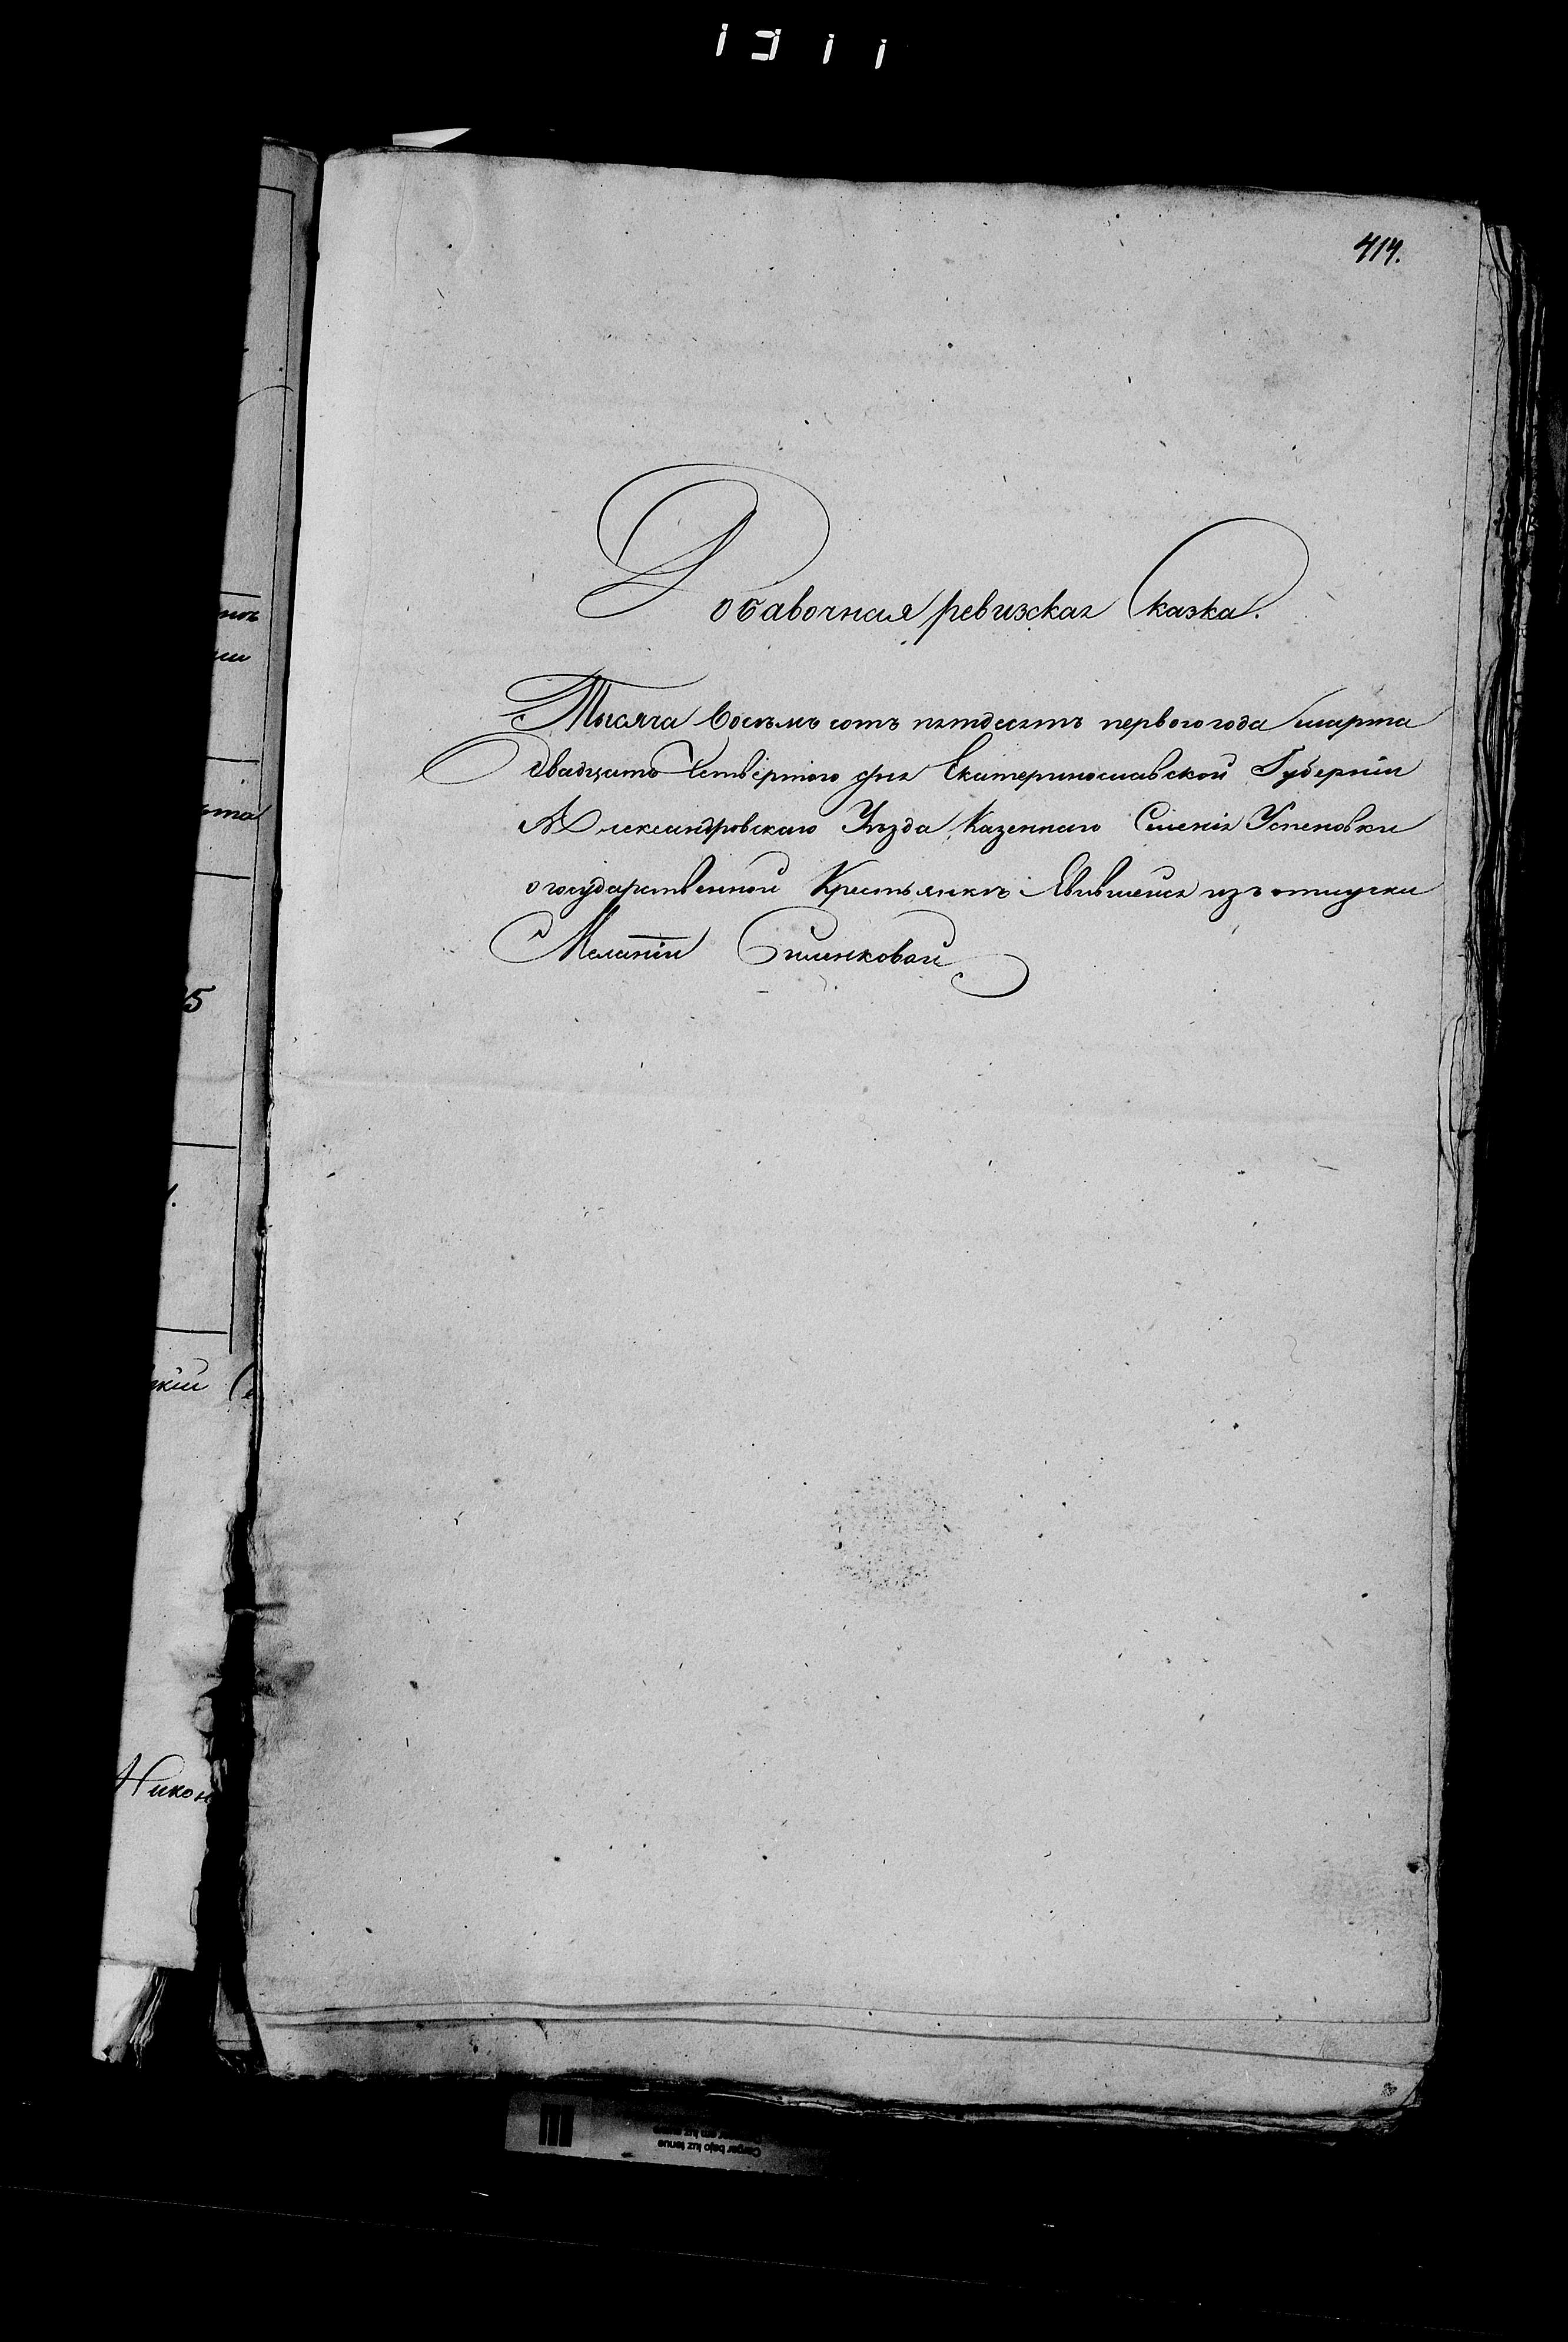 414.
Добавочная ревизская Сказка.
Тысяча Восемь сотъ пятдесятъ первого года марта
двадцать Четвёртого дня Екатеринославской Губерніи
Александровскаго Уѣзда Казеннаго Селенія Успеновки
о государственной Крестьянкѣ Явившейся изъ отлучки
Меланіи
Никон